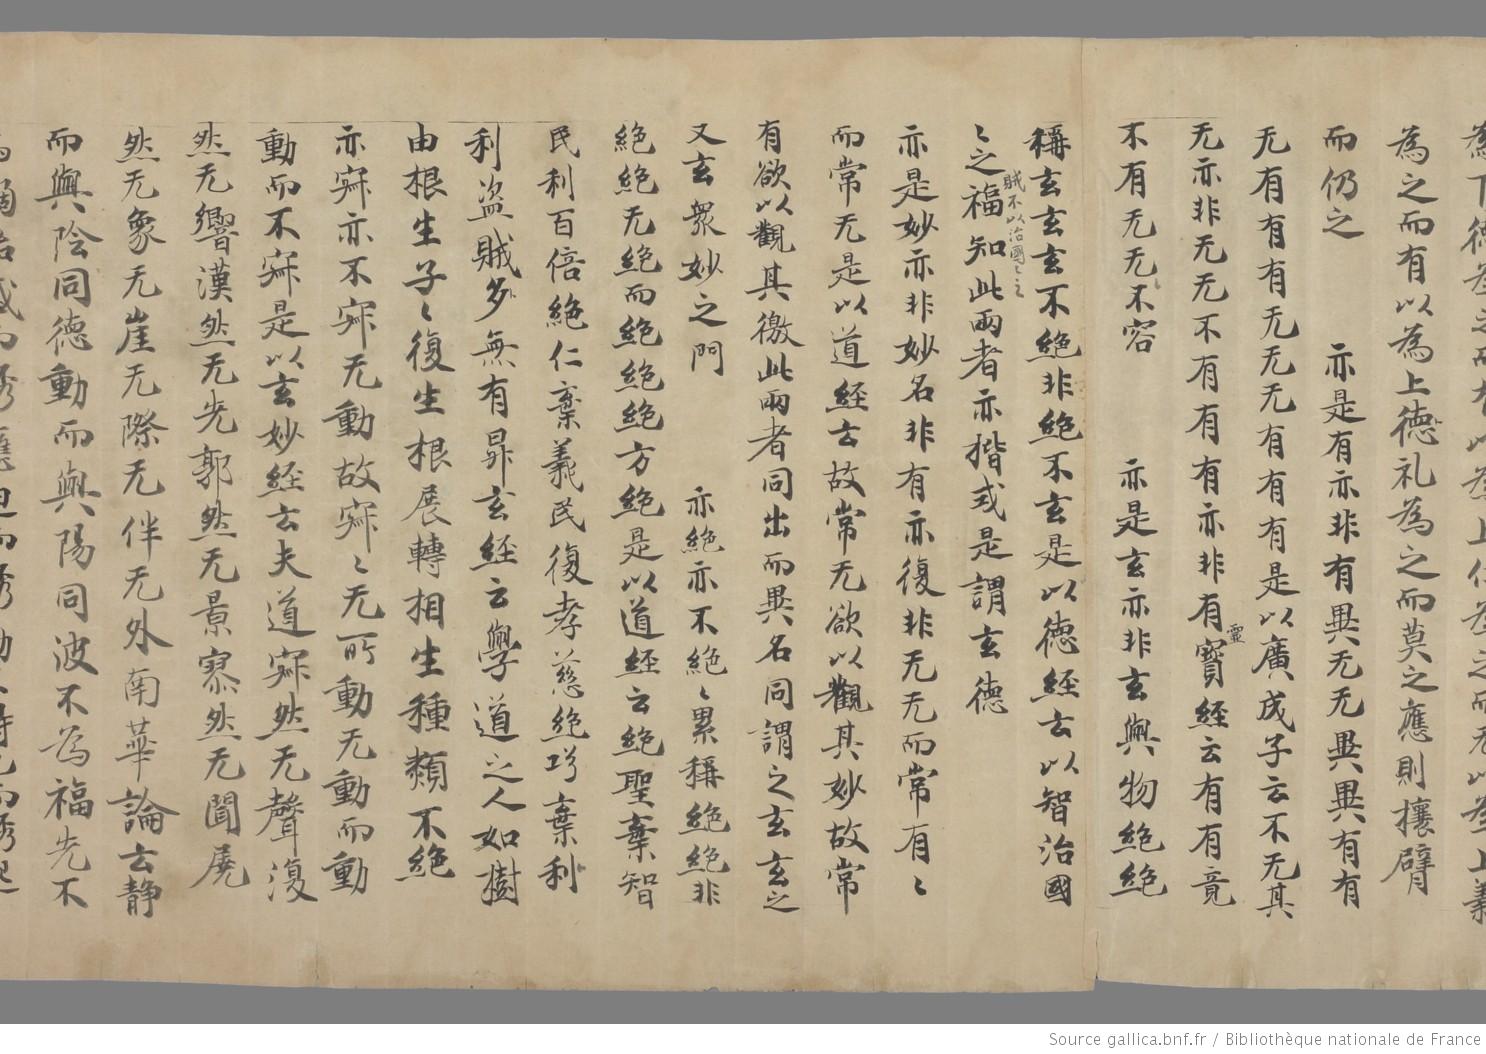 為下德為之而有以為上仁為之而无以為上義
為之而有以為上德礼為之而莫之應則攘臂
而仍之　　亦是有亦非有異无无異異有有
无有有有无无无有有有是以廣成子云不无其
无亦非无无不有有有亦非有寶經云有有竟
靈
不有无无不容　　亦是玄亦非玄與物絕絕
稱玄玄玄不絕非絕不玄是以德經云以智治國
賊不以治國〻之
〻之福知此兩者亦揩式是謂玄德
亦是妙亦非妙名非有亦復非无无而常有〻
而常无是以道經云故常无欲以觀其妙故常
有欲以觀其徼此兩者同出而異名同謂之玄玄之
又玄衆妙之門　　亦絕亦不絕〻累稱絕絕非
絕絕无絕而絕絕絕方絕是以道經云絕聖棄智
民利百倍絕仁棄義民復孝慈絕巧棄利
利盜賊多無有昇玄經云學道之人如樹
由根生子〻復生根展轉相生種類不絕
亦寂亦不寂无動故寂〻无所動无動而動
動而不寂是以玄妙經云夫道寂然无聲復
然无響漠然无先郭然无景寥然无聞晃
然无象无崖无際无伴无外南華論云静
而與陰同德動而與陽同波不為福先不